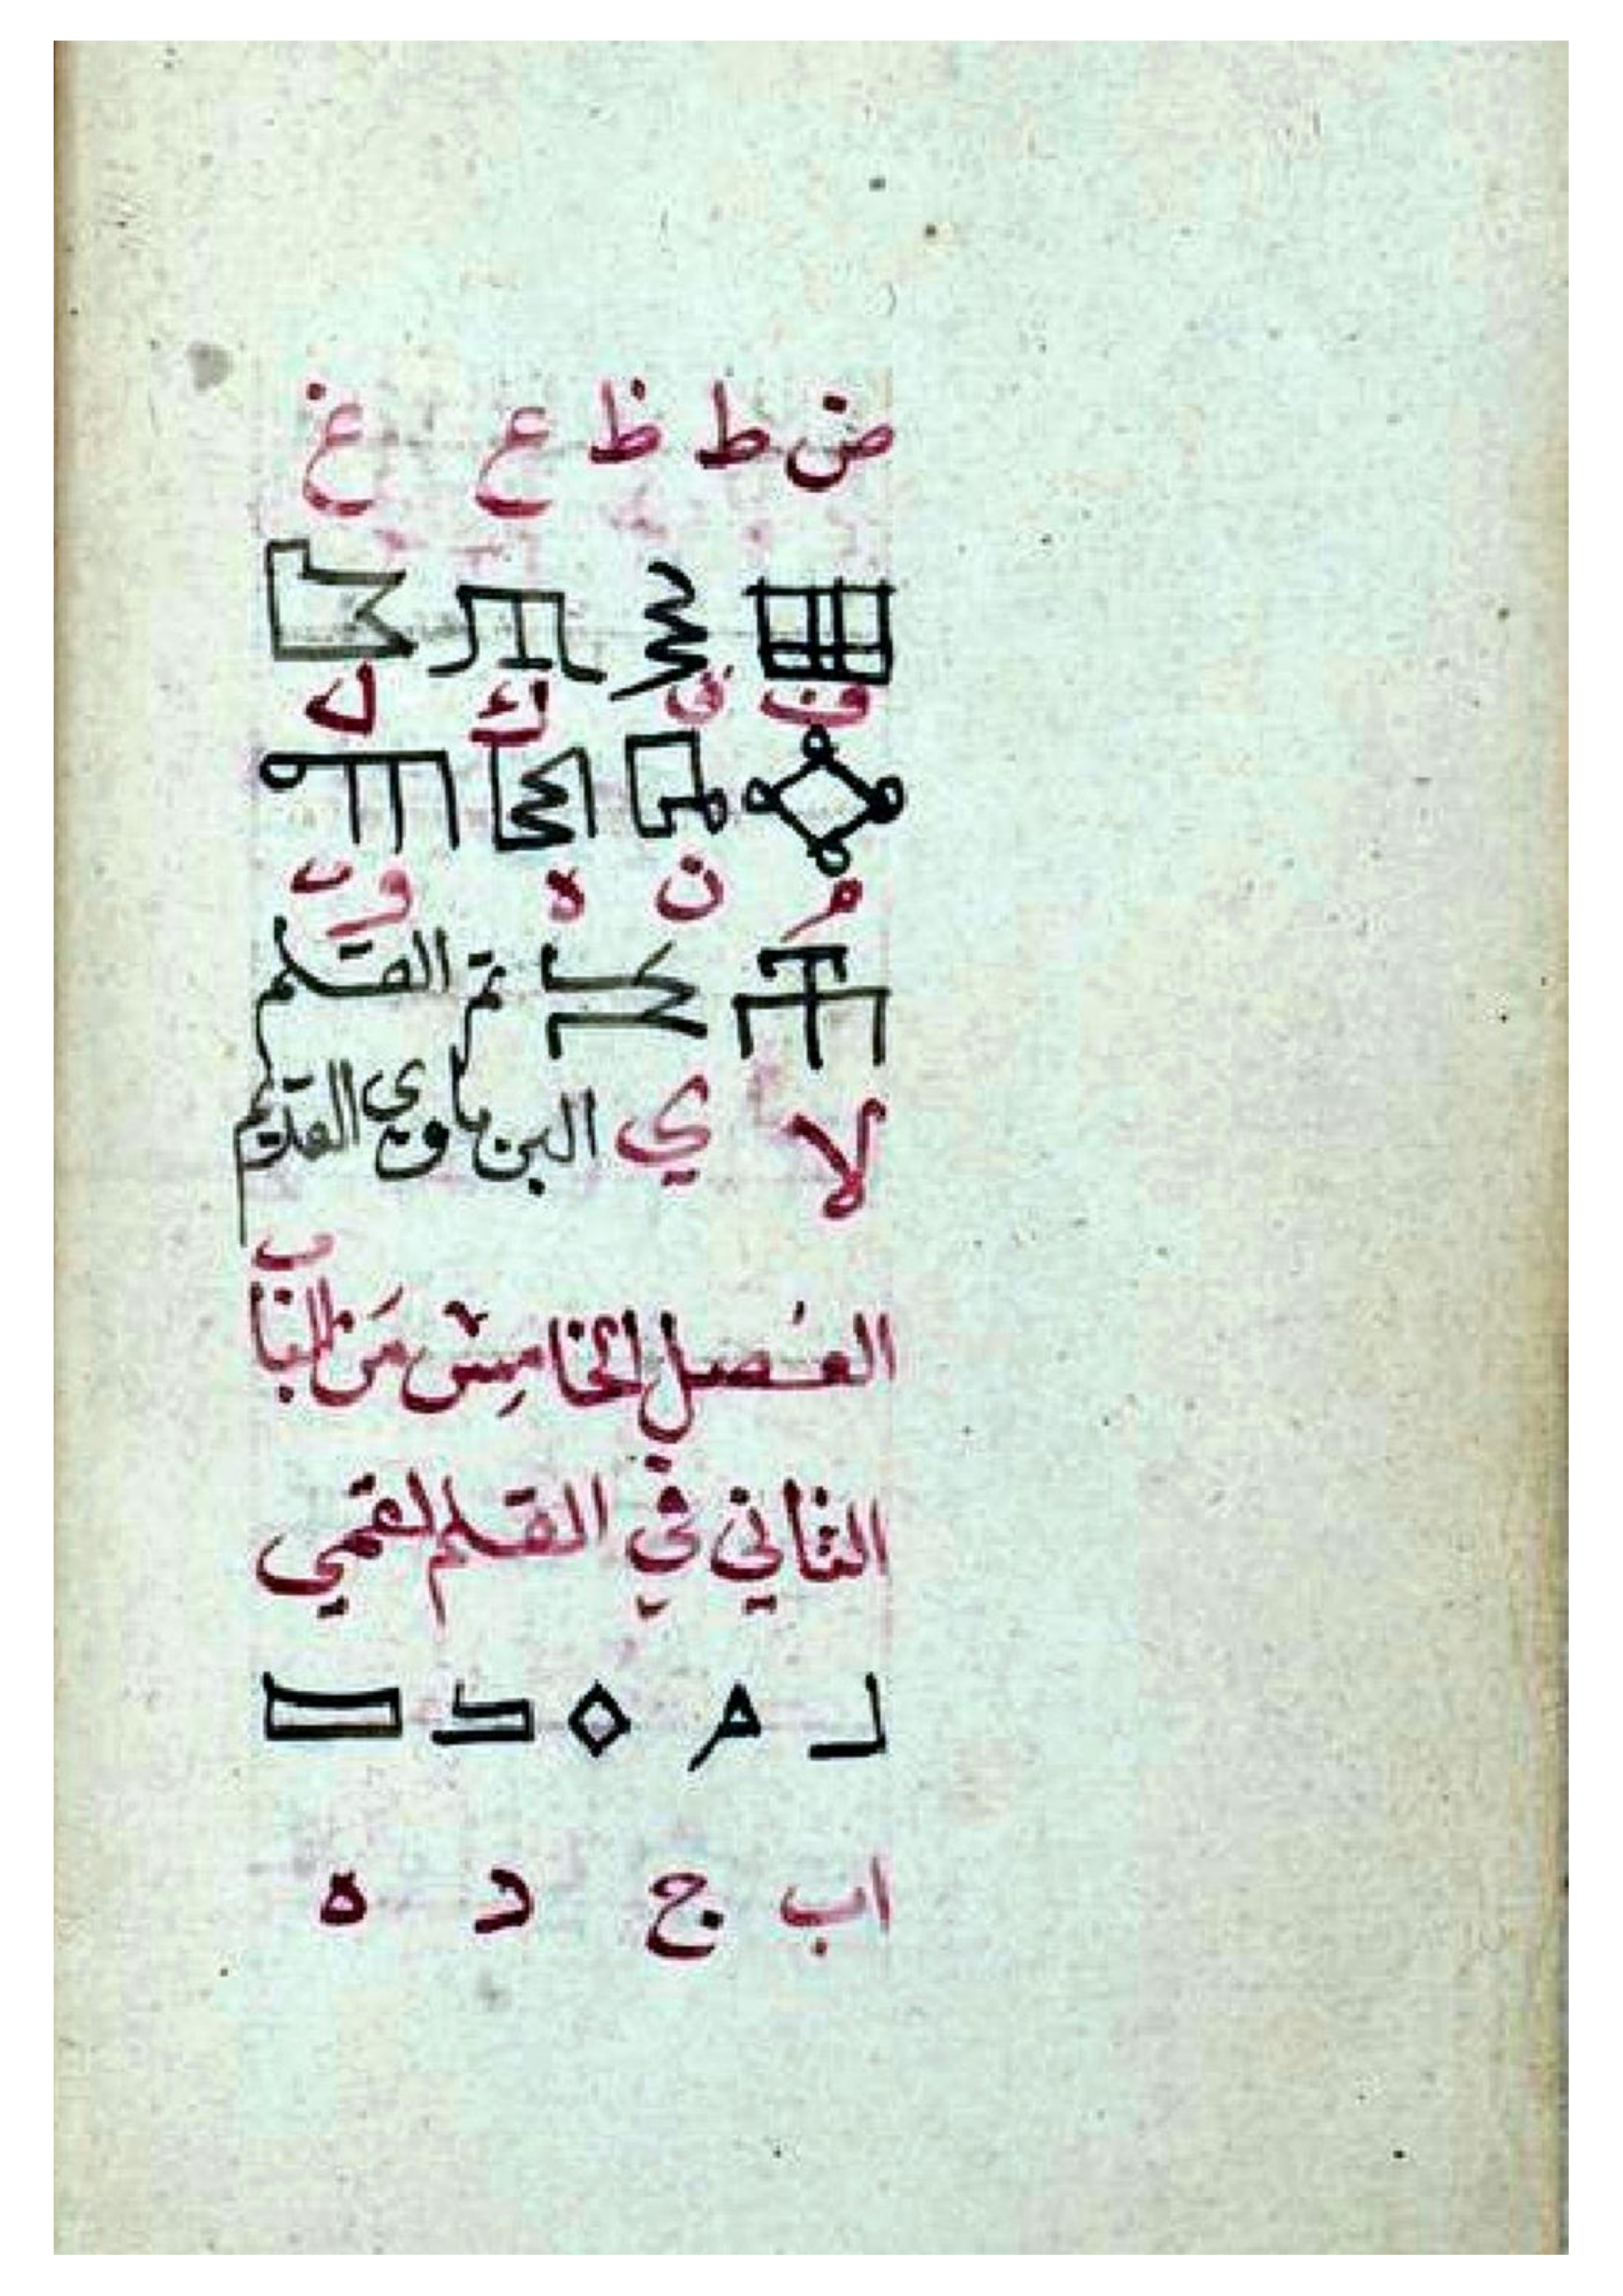 ض ط ظ ع غ
ف ق ك ل
م ن ه و
تم القلم
لا ي البرباوي القديم
الفصل الخامس من الباب
الثاني في القلم لقمي
اب ج د ه